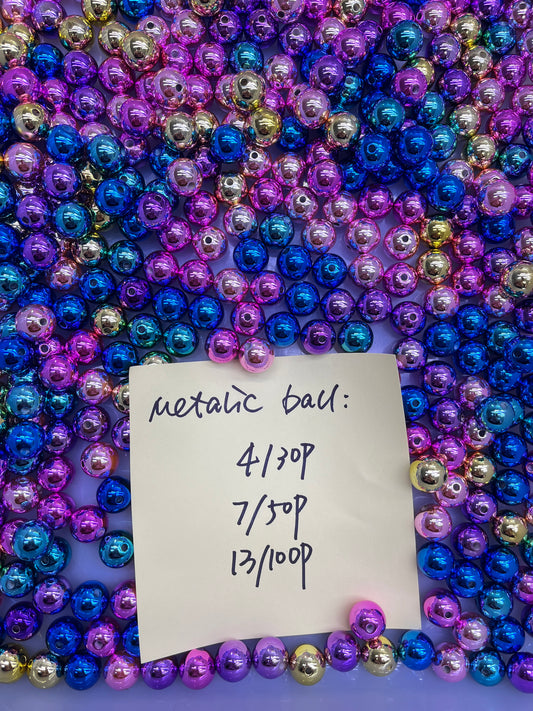 Metalic ball:
4/30P
7/50P
13/100P